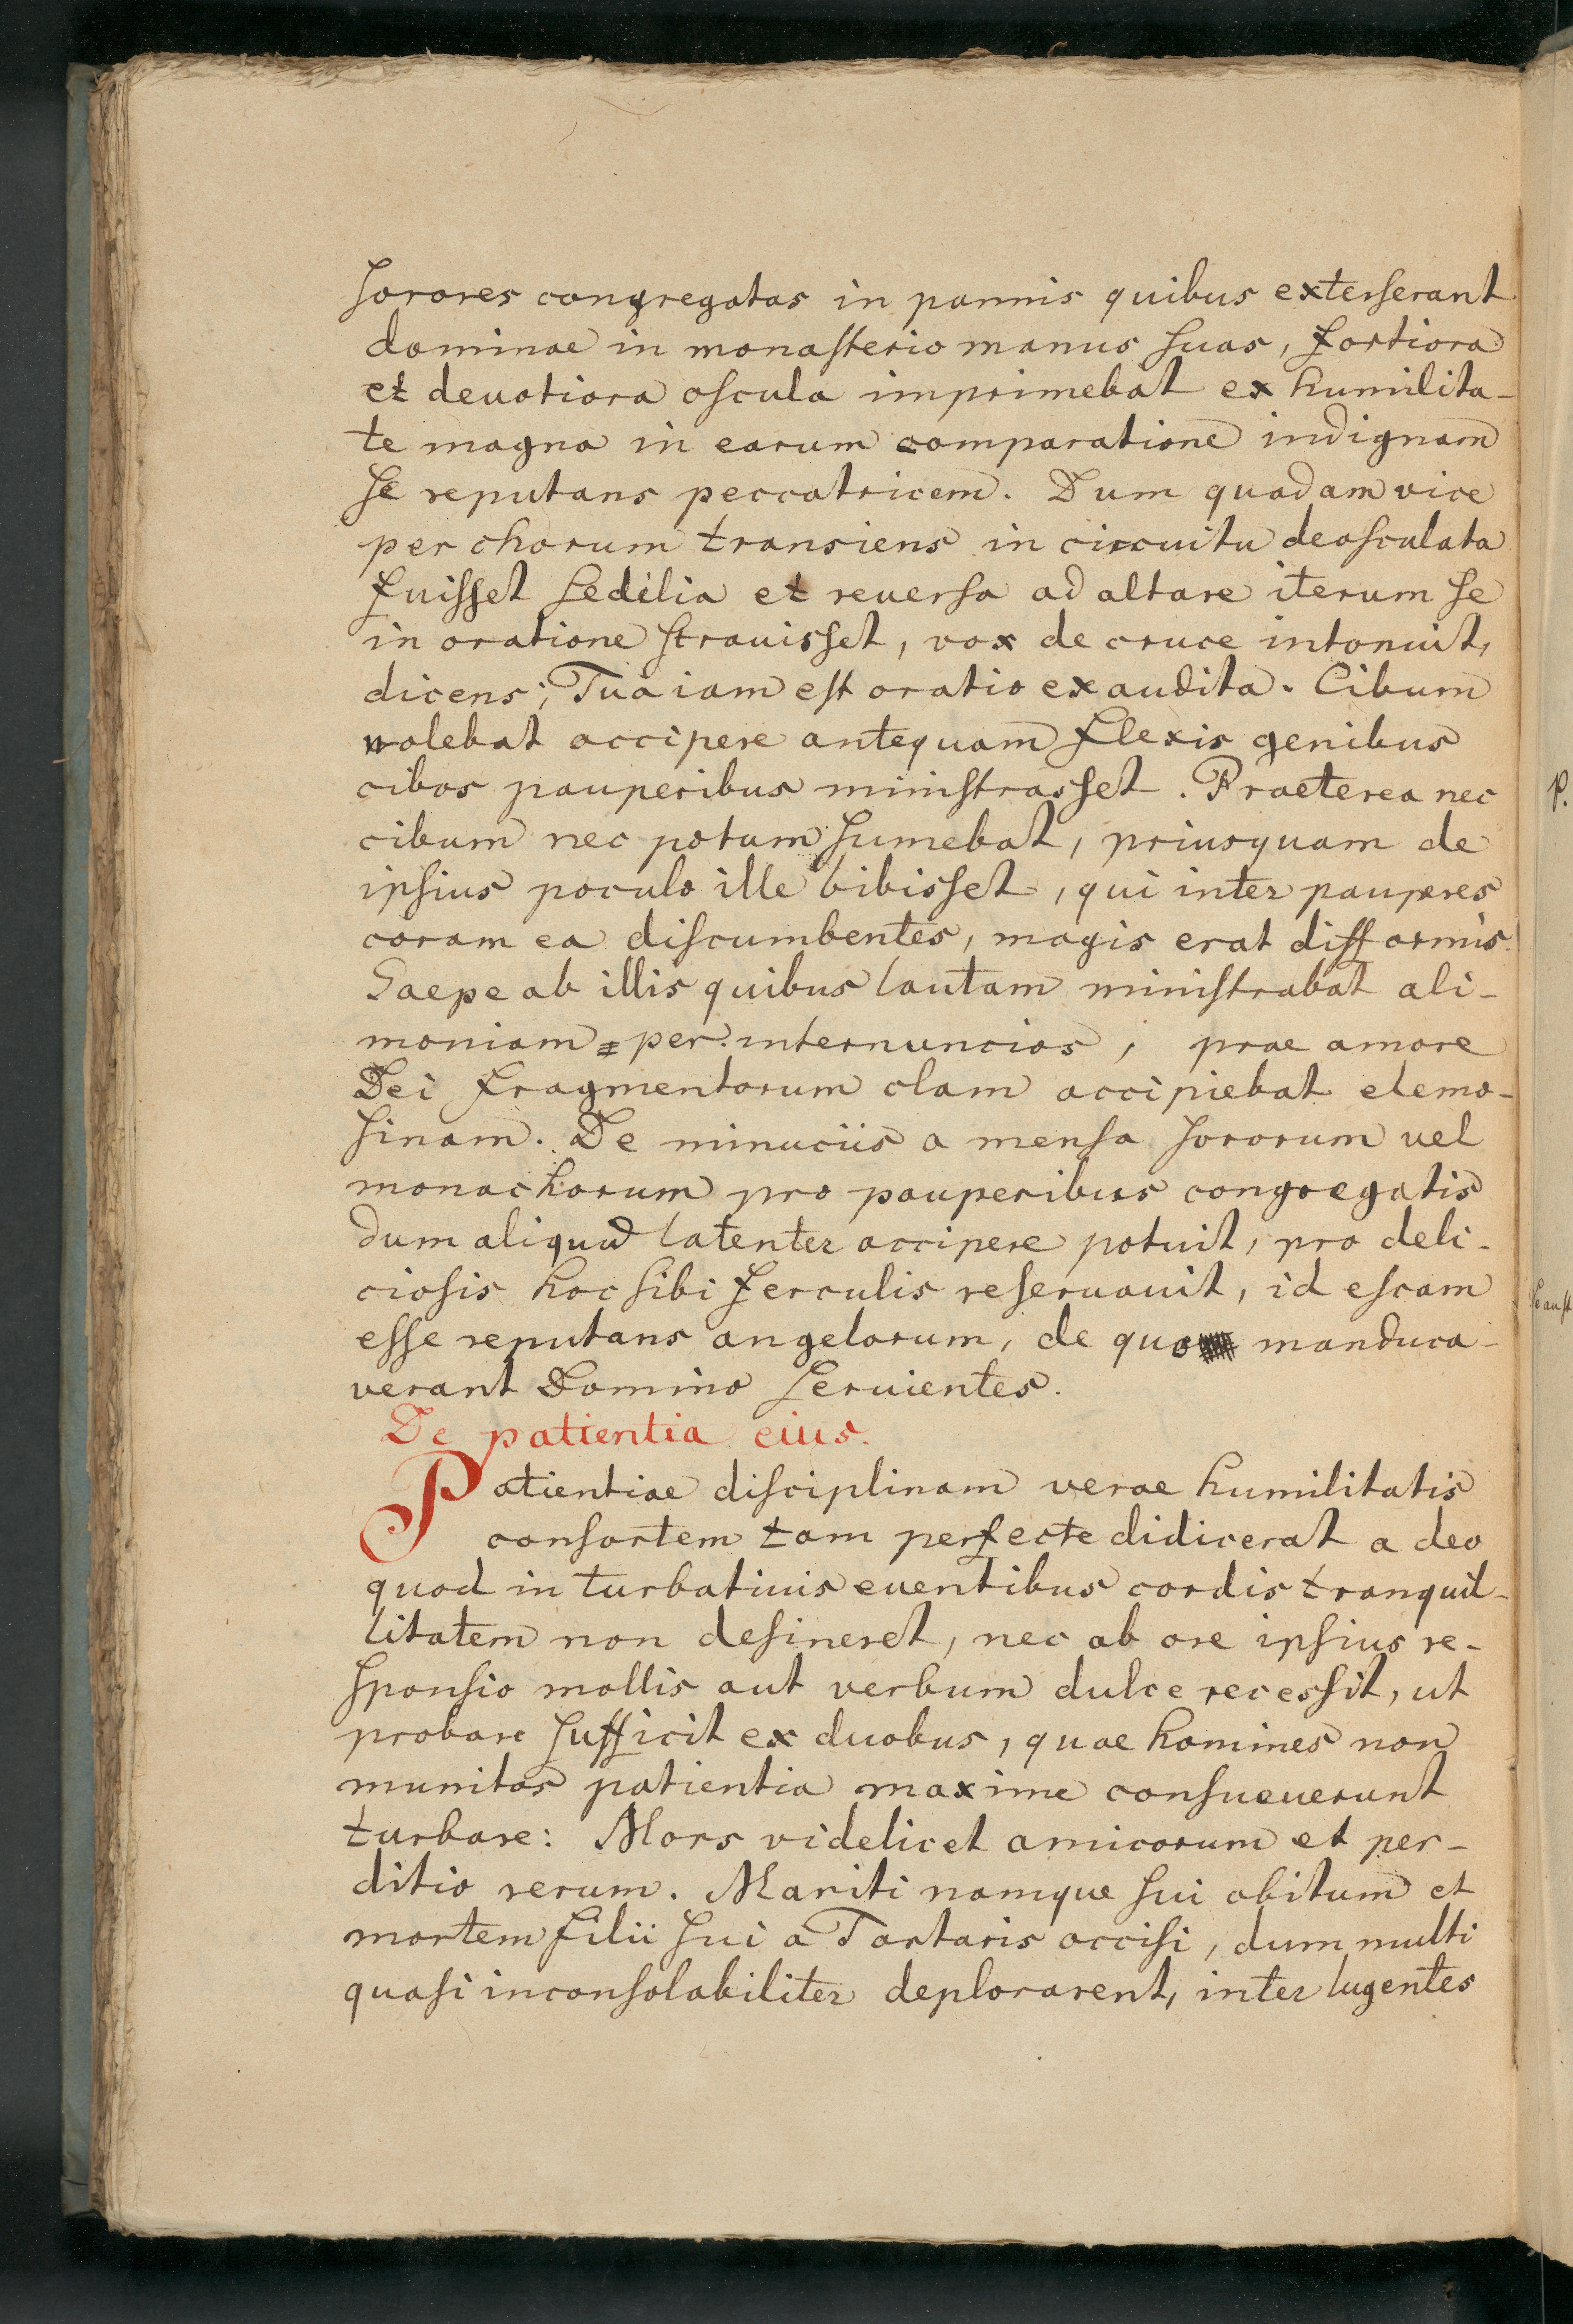 ſorores congregatas in pannis quibus exterſerant
dominae in monaſterio manus ſuas, fortiora
et deuotiora oſcula imprimebat ex humilita-
te magna in earum comparatione indignam
ſe reputans peccatricem. Dum quadam vice
per chorum transiens in circuitu deoſculata
fuiſſet ſedilia et reuerſa ad altare iterum ſe
in oratione ſtrauisſet, vox de cruce intonuit,
dicens; Tua iam eſt oratio exaudita. Cibum
nolebat accipere antequam flexis genibus
cibos pauperibus miniſtrasſet. Praeterea nec
cibum nec potum ſumebat, priusquam de
ipſius poculo ille bibisſet, qui inter pauperes
coram ea diſcumbentes, magis erat difformis.
Saepe ab illis quibus lautam miniſtrabat ali-
moniam per internuncios, prae amore
Dei fragmentorum clam accipiebat elemo-
ſinam. De minuciis a menſa ſororum vel
monachorum pro pauperibus congregatis
dum aliquid latenter accipere potuit, pro deli-
cioſis hoc ſibi ferculis reſeruauit, id eſcam
eſſe reputans angelorum, de quo manduca-
verant Domino ſeruientes.
De patientia eius.
Patientiae diſciplinam verae humilitatis
conſortem tam perfecte didicerat a deo
quod in turbatiuis euentibus cordis tranquil-
litatem non deſineret, nec ab ore ipſius re-
ſponſio mollis aut verbum dulce recesſit, ut
probare ſufficit ex duobus, quae homines non
munitos patientia maxime conſueuerunt
turbare: Mors videlicet amicorum et per-
ditio rerum. Mariti namque ſui obitum et
mortem filii ſui a Tartaris occiſi, dum multi
quaſi inconſolabiliter deplorarent, inter lugentes
P.